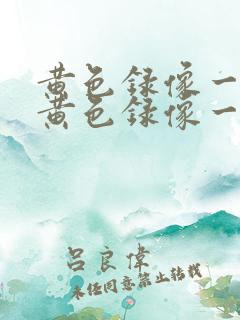 黄色録像一
黄色録像一
吕良偉
未经同意禁止转载